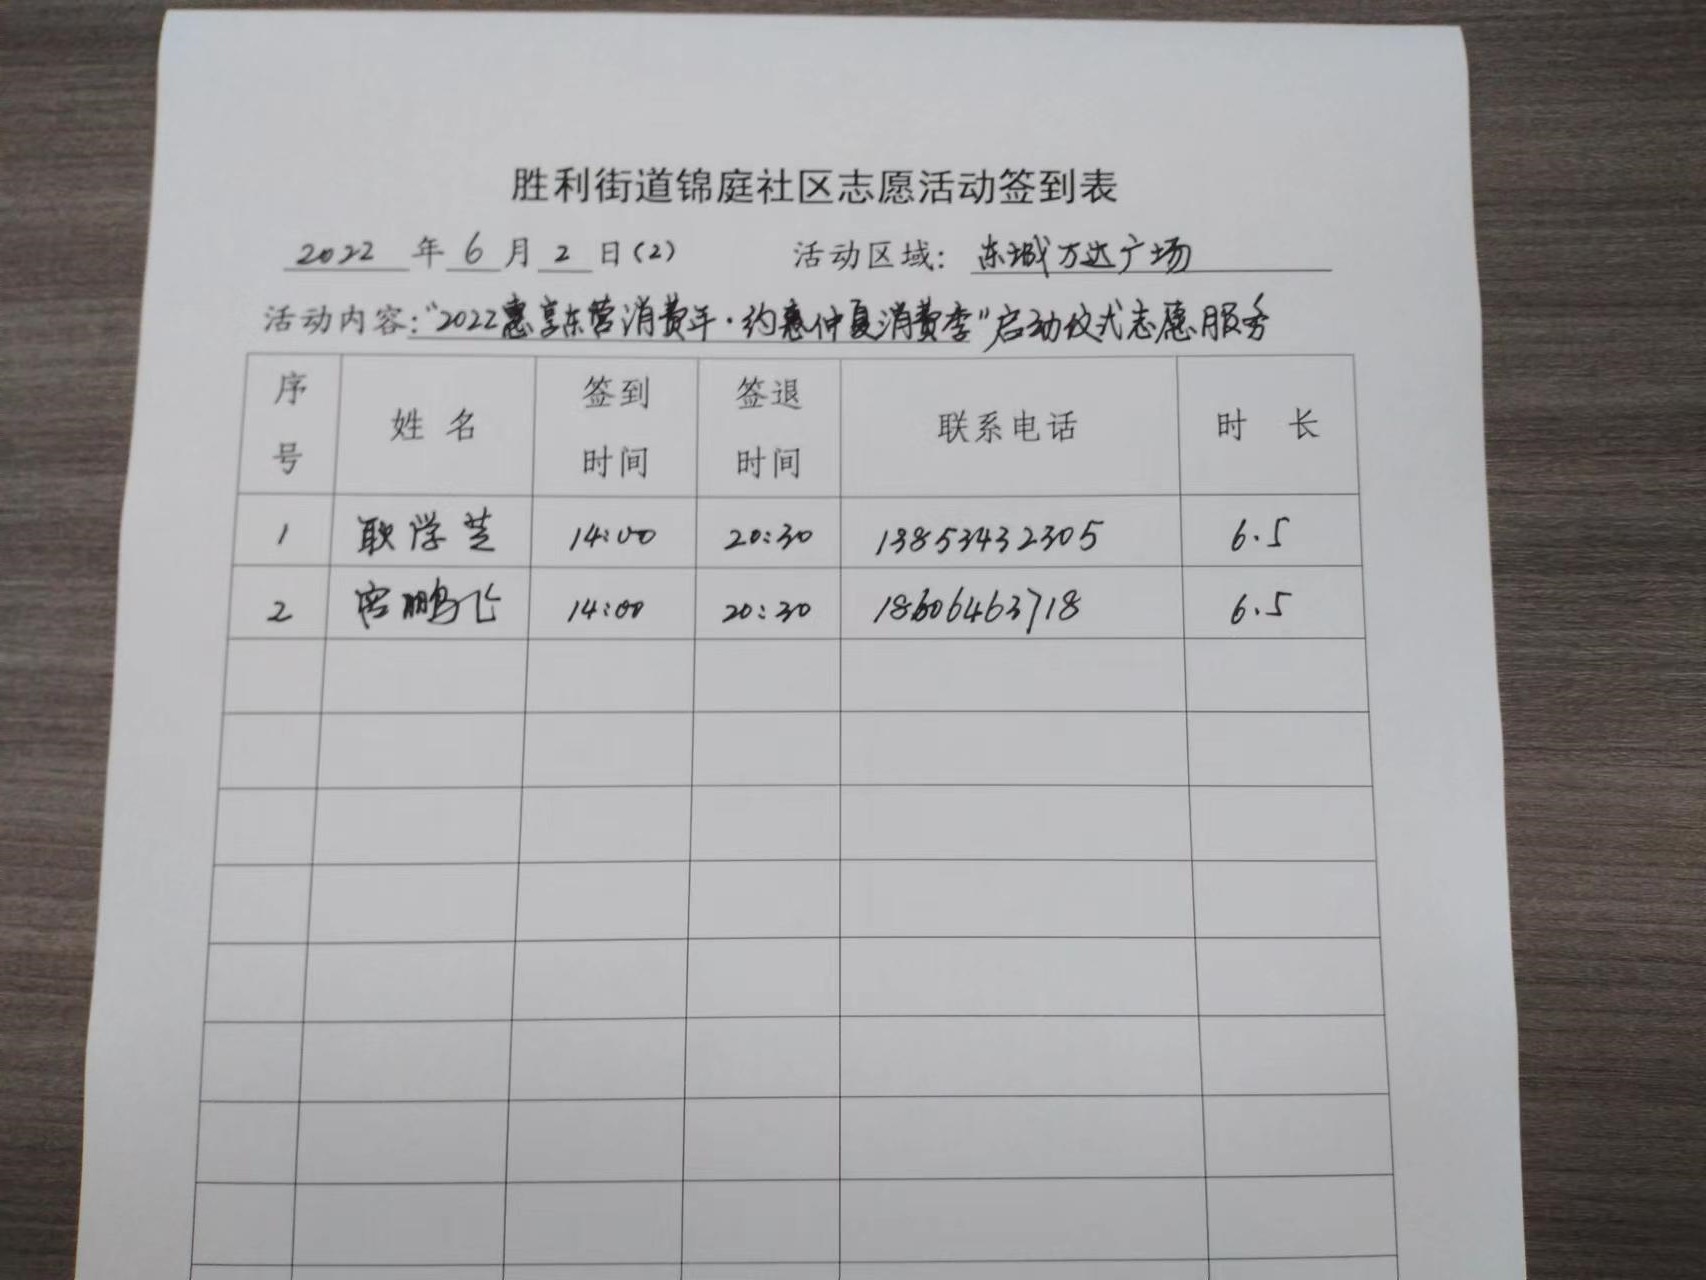 胜利街道锦庭社区志愿活动签到表
2022 年 6 月 2 日(2) 活动区域: 东城万达广场
活动内容:"2022惠享东营消费年·约惠仲夏消费季"启动仪式志愿服务
序号 姓名 签到时间 签退时间 联系电话 时长
1 耿学芝 14:00 20:30 13853432305 6.5
2 宫鹏飞 14:00 20:30 18606463718 6.5